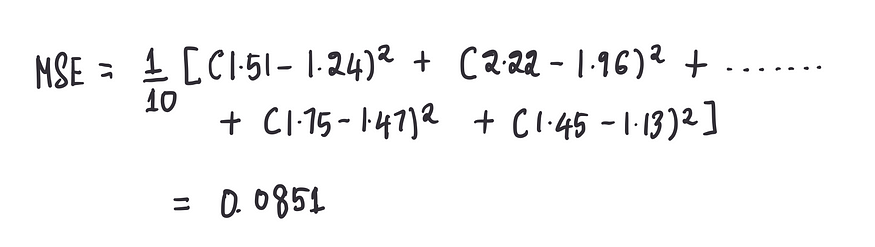 MSE = 1/10 [(1.51 - 1.24)² + (2.22 - 1.96)² + .......
+ (1.75 - 1.47)² + (1.45 - 1.13)²]
= 0.0851